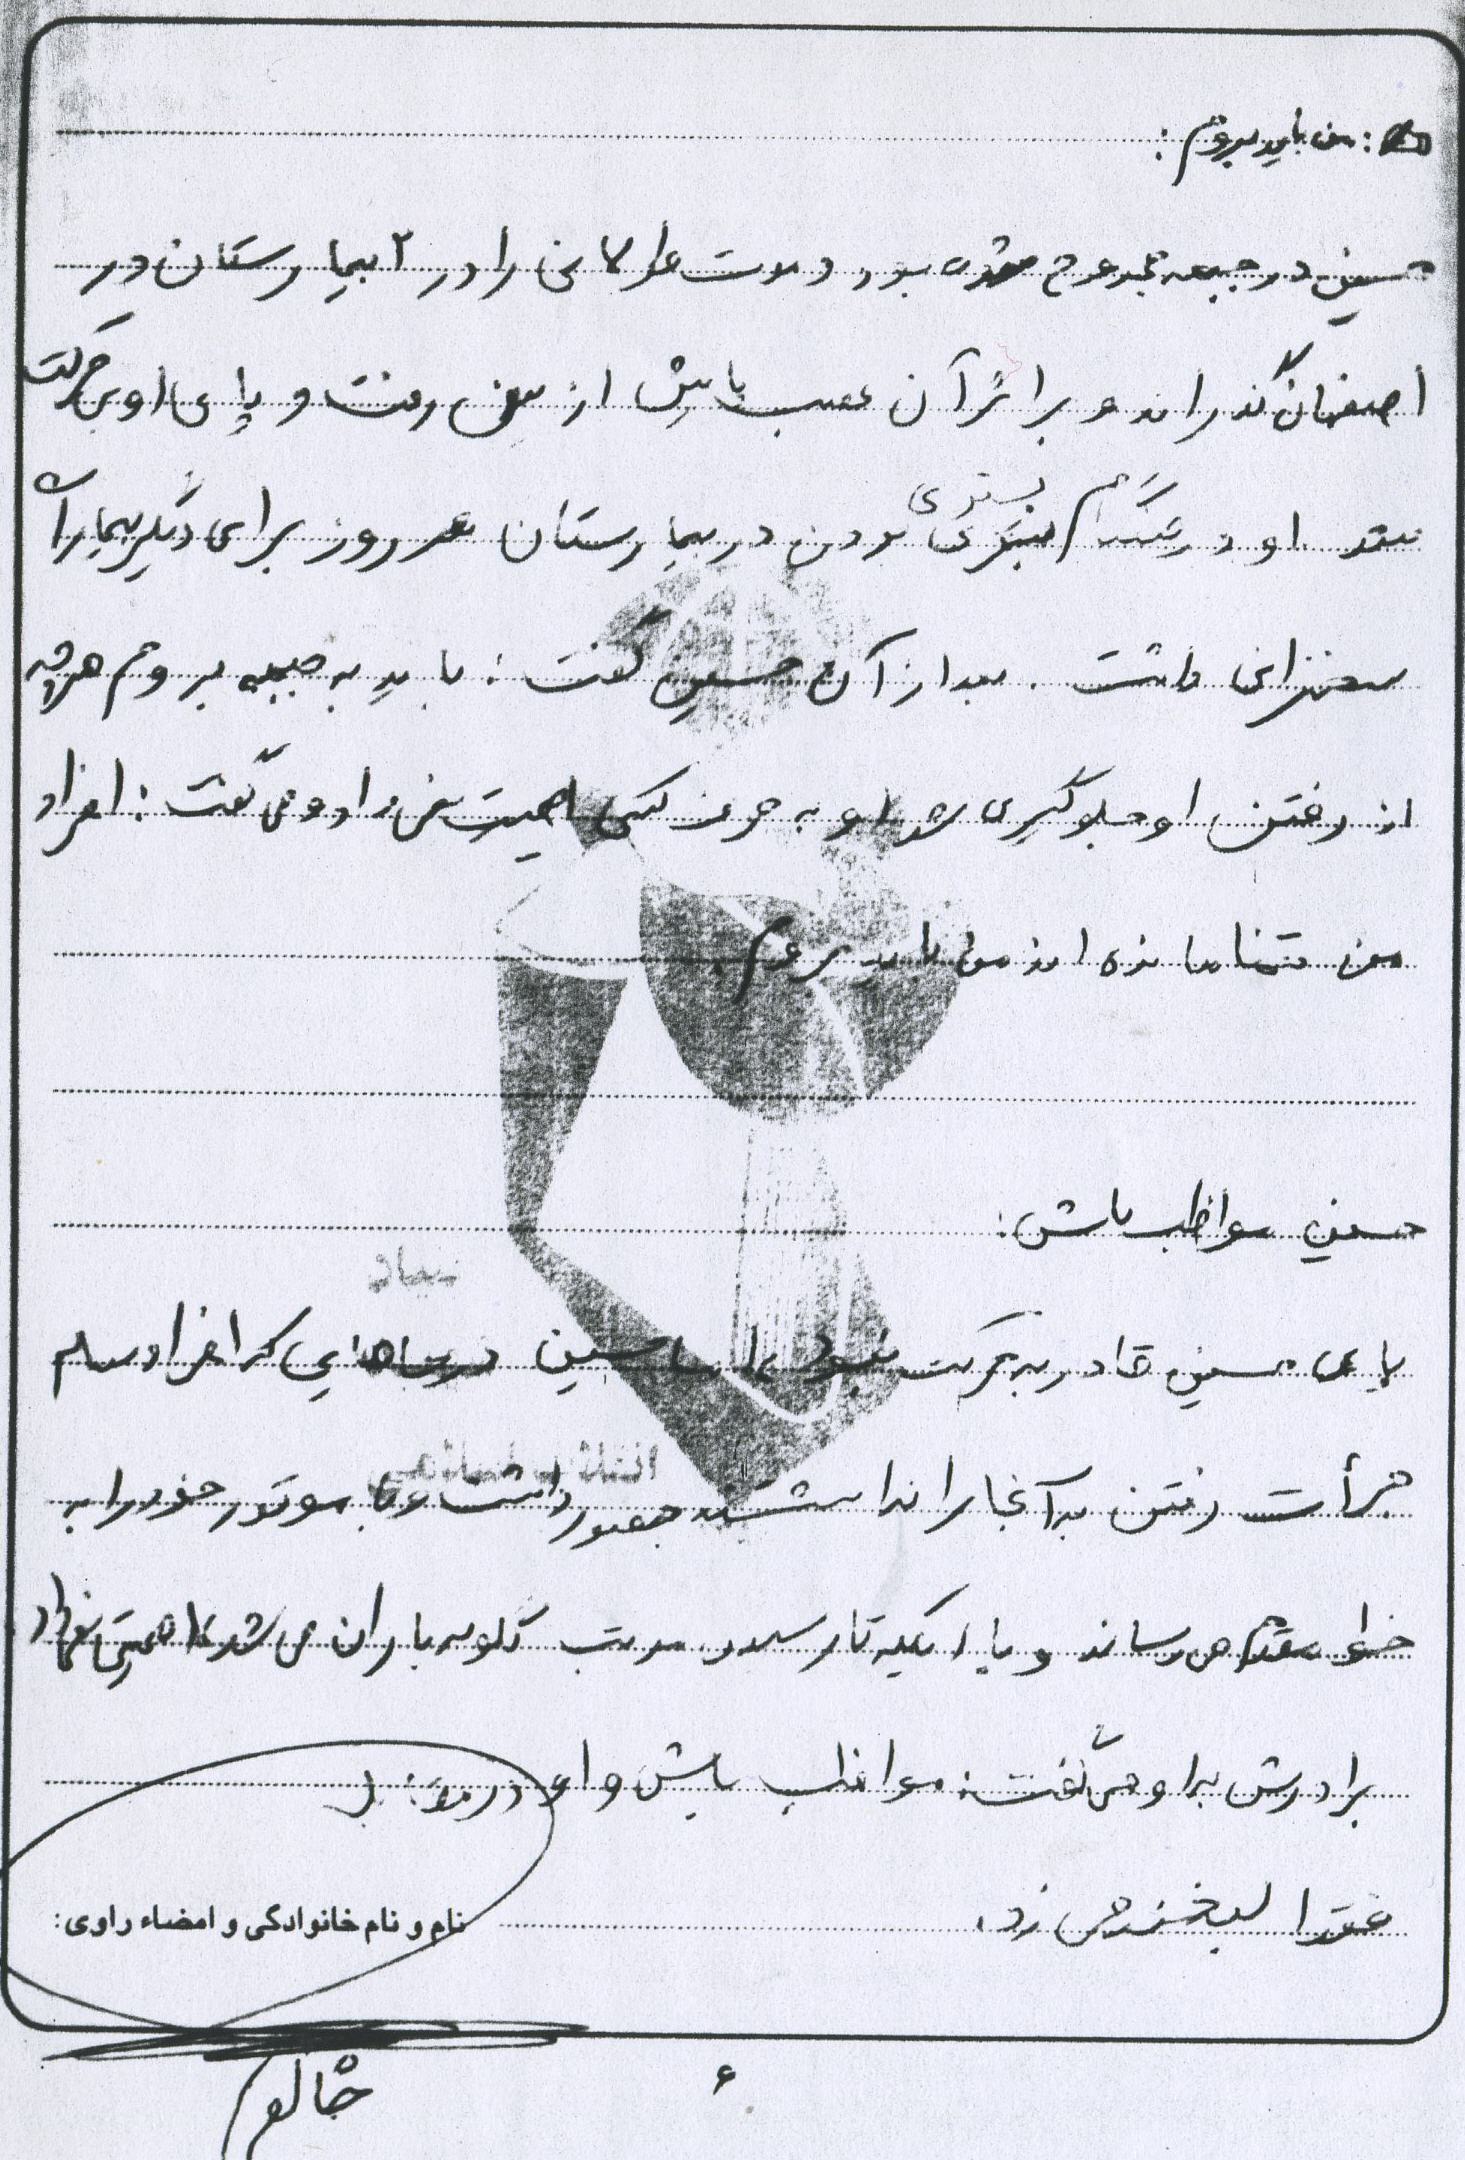 : من باید بروم :
حسین در جبهه مجروح شده بود و مدت طولانی را در ۲ بیمارستان در
اصفهان گذراند و بر اثر آن عصب پایش از بین رفت و پای او بی حرکت
شد. او در هنگام بستری بستری بودن در بیمارستان هر روز برای دیگر بیماران
سخنرانی داشت. بعد از آن حسین گفت: باید به جبهه بروم هرچه
از رفتن او جلوگیری شد او به حرف کسی اهمیت نمی داد و می گفت: افراد
من تنها مانده اند من باید بروم.
حسین مواظب باش:
پای حسین قادر به حرکت نبود، اما حسین در جاهایی که افراد سالم
جرأت رفتن به آنجا را نداشتند حضور داشت و با موتور خود را به
خط مقدم می رساند و با اینکه تا رسیدن مدت گلوله باران می شد اهمیتی نمی داد
برادرش به او می گفت: مواظب باش و او در مقابل
فقط لبخند می زد.
نام و نام خانوادگی و امضاء راوی:
۶